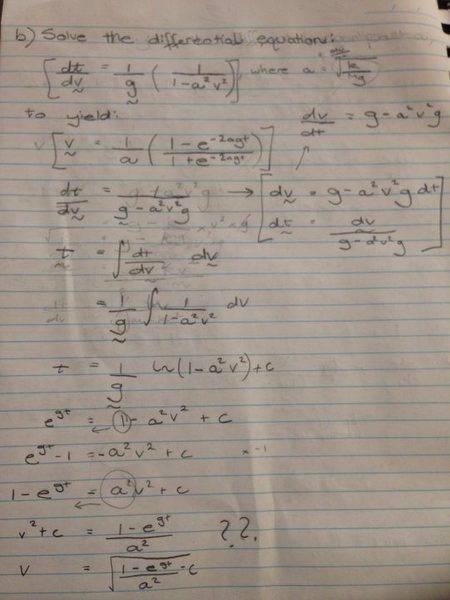 b) Solve the differential equation:
[dt/dv = 1/g (1/(1-a²v²))] where a = √(k/mg)
to yield: dv/dt = g-a²v²g
v [v = 1/a ((1-e^-2agt)/(1+e^-2agt))]
dt/dv = 1/(g-a²v²g) → [dv = g-a²v²g dt
dt = dv/(g-a²v²g)]
t = ∫ dt/dv dv
= 1/g ∫ 1/(1-a²v²) dv
t = 1/g ln(1-a²v²)+c
e^gt = 1-a²v²+c
e^gt-1 = -a²v²+c ×-1
1-e^gt = a²v²+c
v²+c = (1-e^gt)/a² ??.
v = √((1-e^gt)/a² -c)